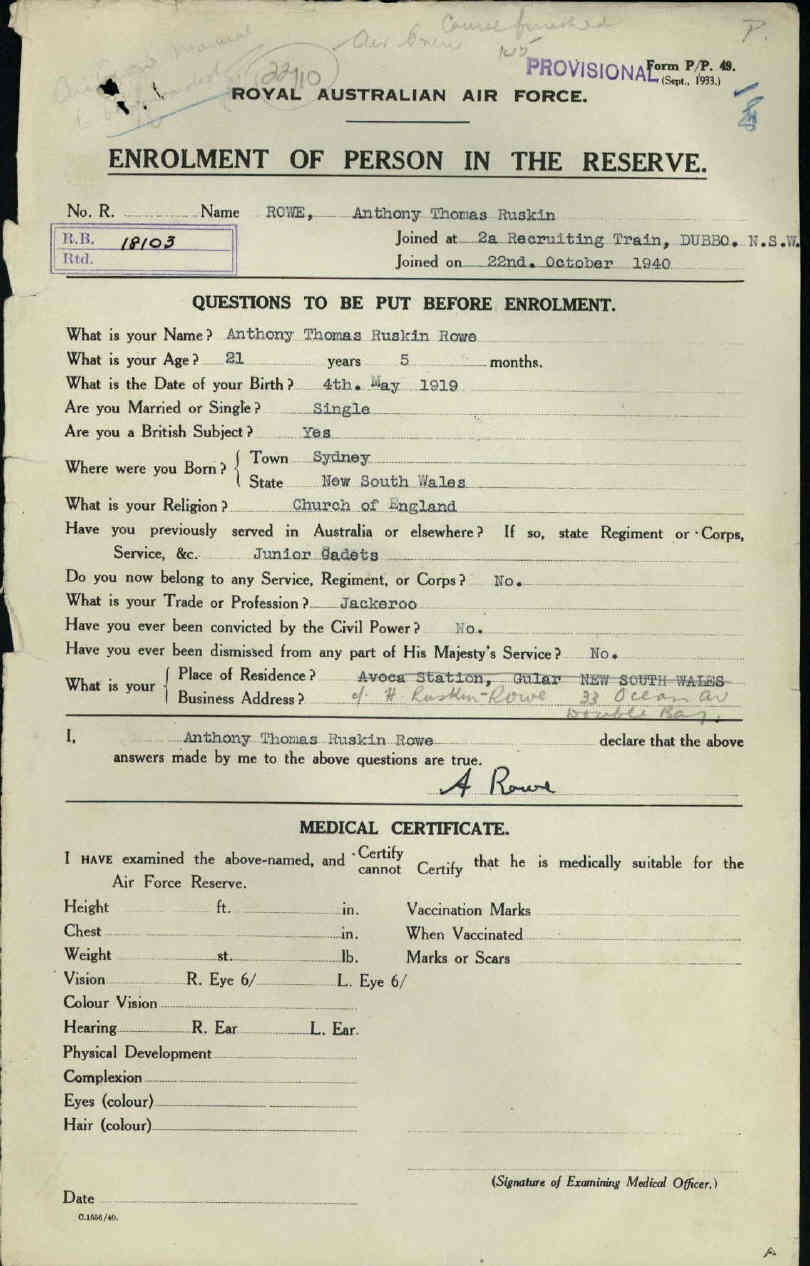 Course finished
Air Crew
P.
22/10
PROVISIONAL Form P/P. 49.
(Sept., 1933.)
ROYAL AUSTRALIAN AIR FORCE.
ENROLMENT OF PERSON IN THE RESERVE.
No. R. Name ROWE, Anthony Thomas Ruskin
R.B. 18103
Rtd.
Joined at 2a Recruiting Train, DUBBO. N.S.W.
Joined on 22nd. October 1940
QUESTIONS TO BE PUT BEFORE ENROLMENT.
What is your Name? Anthony Thomas Ruskin Rowe
What is your Age? 21 years 5 months.
What is the Date of your Birth? 4th. May 1919
Are you Married or Single? Single
Are you a British Subject? Yes
Where were you Born? { Town Sydney
State New South Wales
What is your Religion? Church of England
Have you previously served in Australia or elsewhere? If so, state Regiment or Corps,
Service, &c. Junior Cadets
Do you now belong to any Service, Regiment, or Corps? No.
What is your Trade or Profession? Jackeroo
Have you ever been convicted by the Civil Power? No.
Have you ever been dismissed from any part of His Majesty's Service? No.
What is your { Place of Residence? Avoca Station, Gular NEW SOUTH WALES
Business Address? c/. H Ruskin-Rowe 33 Ocean Av
Double Bay.
I, Anthony Thomas Ruskin Rowe declare that the above
answers made by me to the above questions are true.
A Rowe
MEDICAL CERTIFICATE.
I HAVE examined the above-named, and Certify
cannot Certify that he is medically suitable for the
Air Force Reserve.
Height ft. in. Vaccination Marks
Chest in. When Vaccinated
Weight st. lb. Marks or Scars
Vision R. Eye 6/ L. Eye 6/
Colour Vision
Hearing R. Ear L. Ear.
Physical Development
Complexion
Eyes (colour)
Hair (colour)
(Signature of Examining Medical Officer.)
Date
C.1556/40.